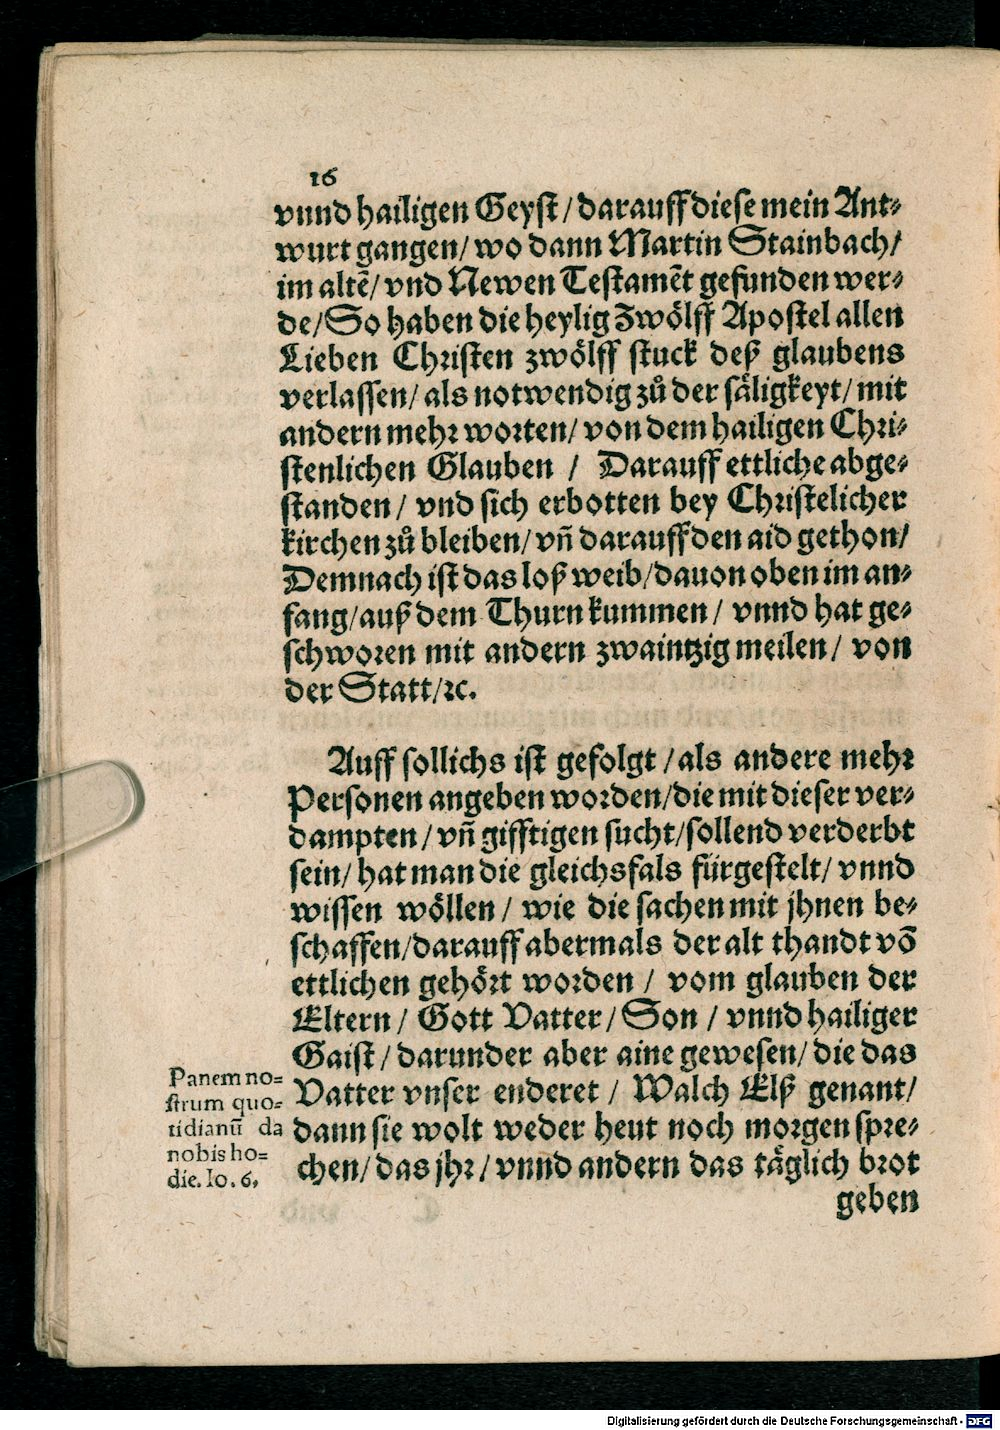 16
vnnd hailigen Geyst / darauff diese mein Ant⸗
wurt gangen / wo dann Martin Stainbach /
im altē / vnd Newen Testamēt gefunden wer⸗
de / So haben die heylig Zwölff Apostel allen
Lieben Christen zwölff stuck deß glaubens
verlassen / als notwendig zů der säligkeyt / mit
andern mehr worten / von dem hailigen Chri⸗
stenlichen Glauben / Darauff ettliche abge⸗
standen / vnd sich erbotten bey Christelicher
kirchen zů bleiben / vñ darauff den aid gethon /
Demnach ist das loß weib / dauon oben im an⸗
fang / auß dem Thurn kummen / vnnd hat ge⸗
schworen mit andern zwaintzig meilen / von
der Statt / ꝛc.
Auff sollichs ist gefolgt / als andere mehr
Personen angeben worden / die mit dieser ver⸗
dampten / vñ gifftigen sucht / sollend verderbt
sein / hat man die gleichsfals fürgestelt / vnnd
wissen wöllen / wie die sachen mit jhnen be⸗
schaffen / darauff abermals der alt thandt vō
ettlichen gehört worden / vom glauben der
Eltern / Gott Vatter / Son / vnnd hailiger
Gaist / darunder aber aine gewesen / die das
Vatter vnser enderet / Walch Elß genant /
dann sie wolt weder heut noch morgen spre⸗
chen / das jhr / vnnd andern das täglich brot
geben
Panem no=
strum quo=
tidianū da
nobis ho=
die. Io. 6,
Digitalisierung gefördert durch die Deutsche Forschungsgemeinschaft - DFG